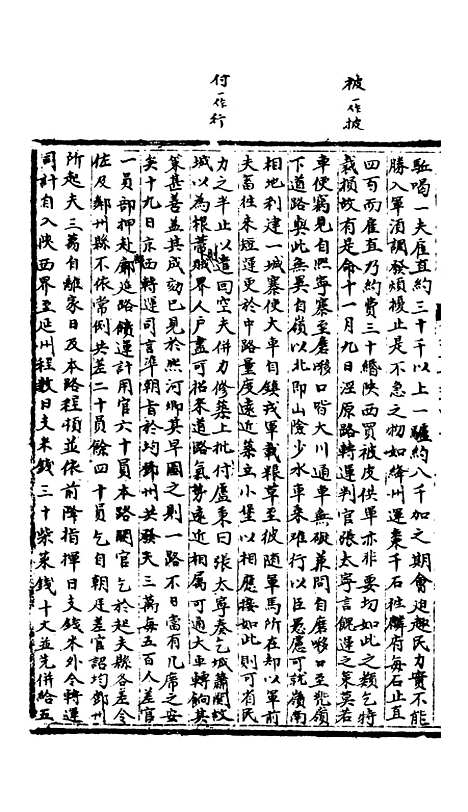 被一作披
付一作行
駈喝一夫雇直約三十千以上一驢約八千加之期會迫趣民力實不能
勝入軍須調發煩擾止是不急之物如絳州運棗千石往麟府每石止直
四百而雇直乃約費三十緡陝西買被皮供軍亦非要切如此之類乞特
裁損故有是命十一月九日涇原路轉運判官張太寧言餽運之策莫若
車便竊見自熙寧寨至磨𠶹口皆大川通車無礙兼問自磨𠶹口至兜嶺
下道路輿此無異自嶺以北即山險少水車來难行以臣愚慮可就嶺南
相地利建一城寨使大車自鎮戎軍載粮草至彼隨軍馬所在却以軍前
夫畜往来短運更於中路量度遠近築立小堡以相應接如此則可省民
力之半止以遣回空夫併力修築上批付盧秉曰張太寧奏乞城蕭関故
城以為根蔕賊界人户盡可招来道路氣勢遠近相属可通大車轉餉其
策甚善蓋其成効已見於熙河卿其早圖之則一路不日當有几席之安
矣十九日京西轉運司言準朝旨於均鄧州共發夫三萬每五百人差官
一員部押赴鄜延路饋運計用官六十員本路闕官乞於起夫縣各差令
佐及鄰州縣不依常例共差二十員餘四十員乞自朝廷差官詔均鄧州
所起夫三萬自離家日及本路程頓並依前降指揮日支錢米外令轉運
司計自入陝西界至延州程數日支米錢三十柴菜錢十文並先併給五